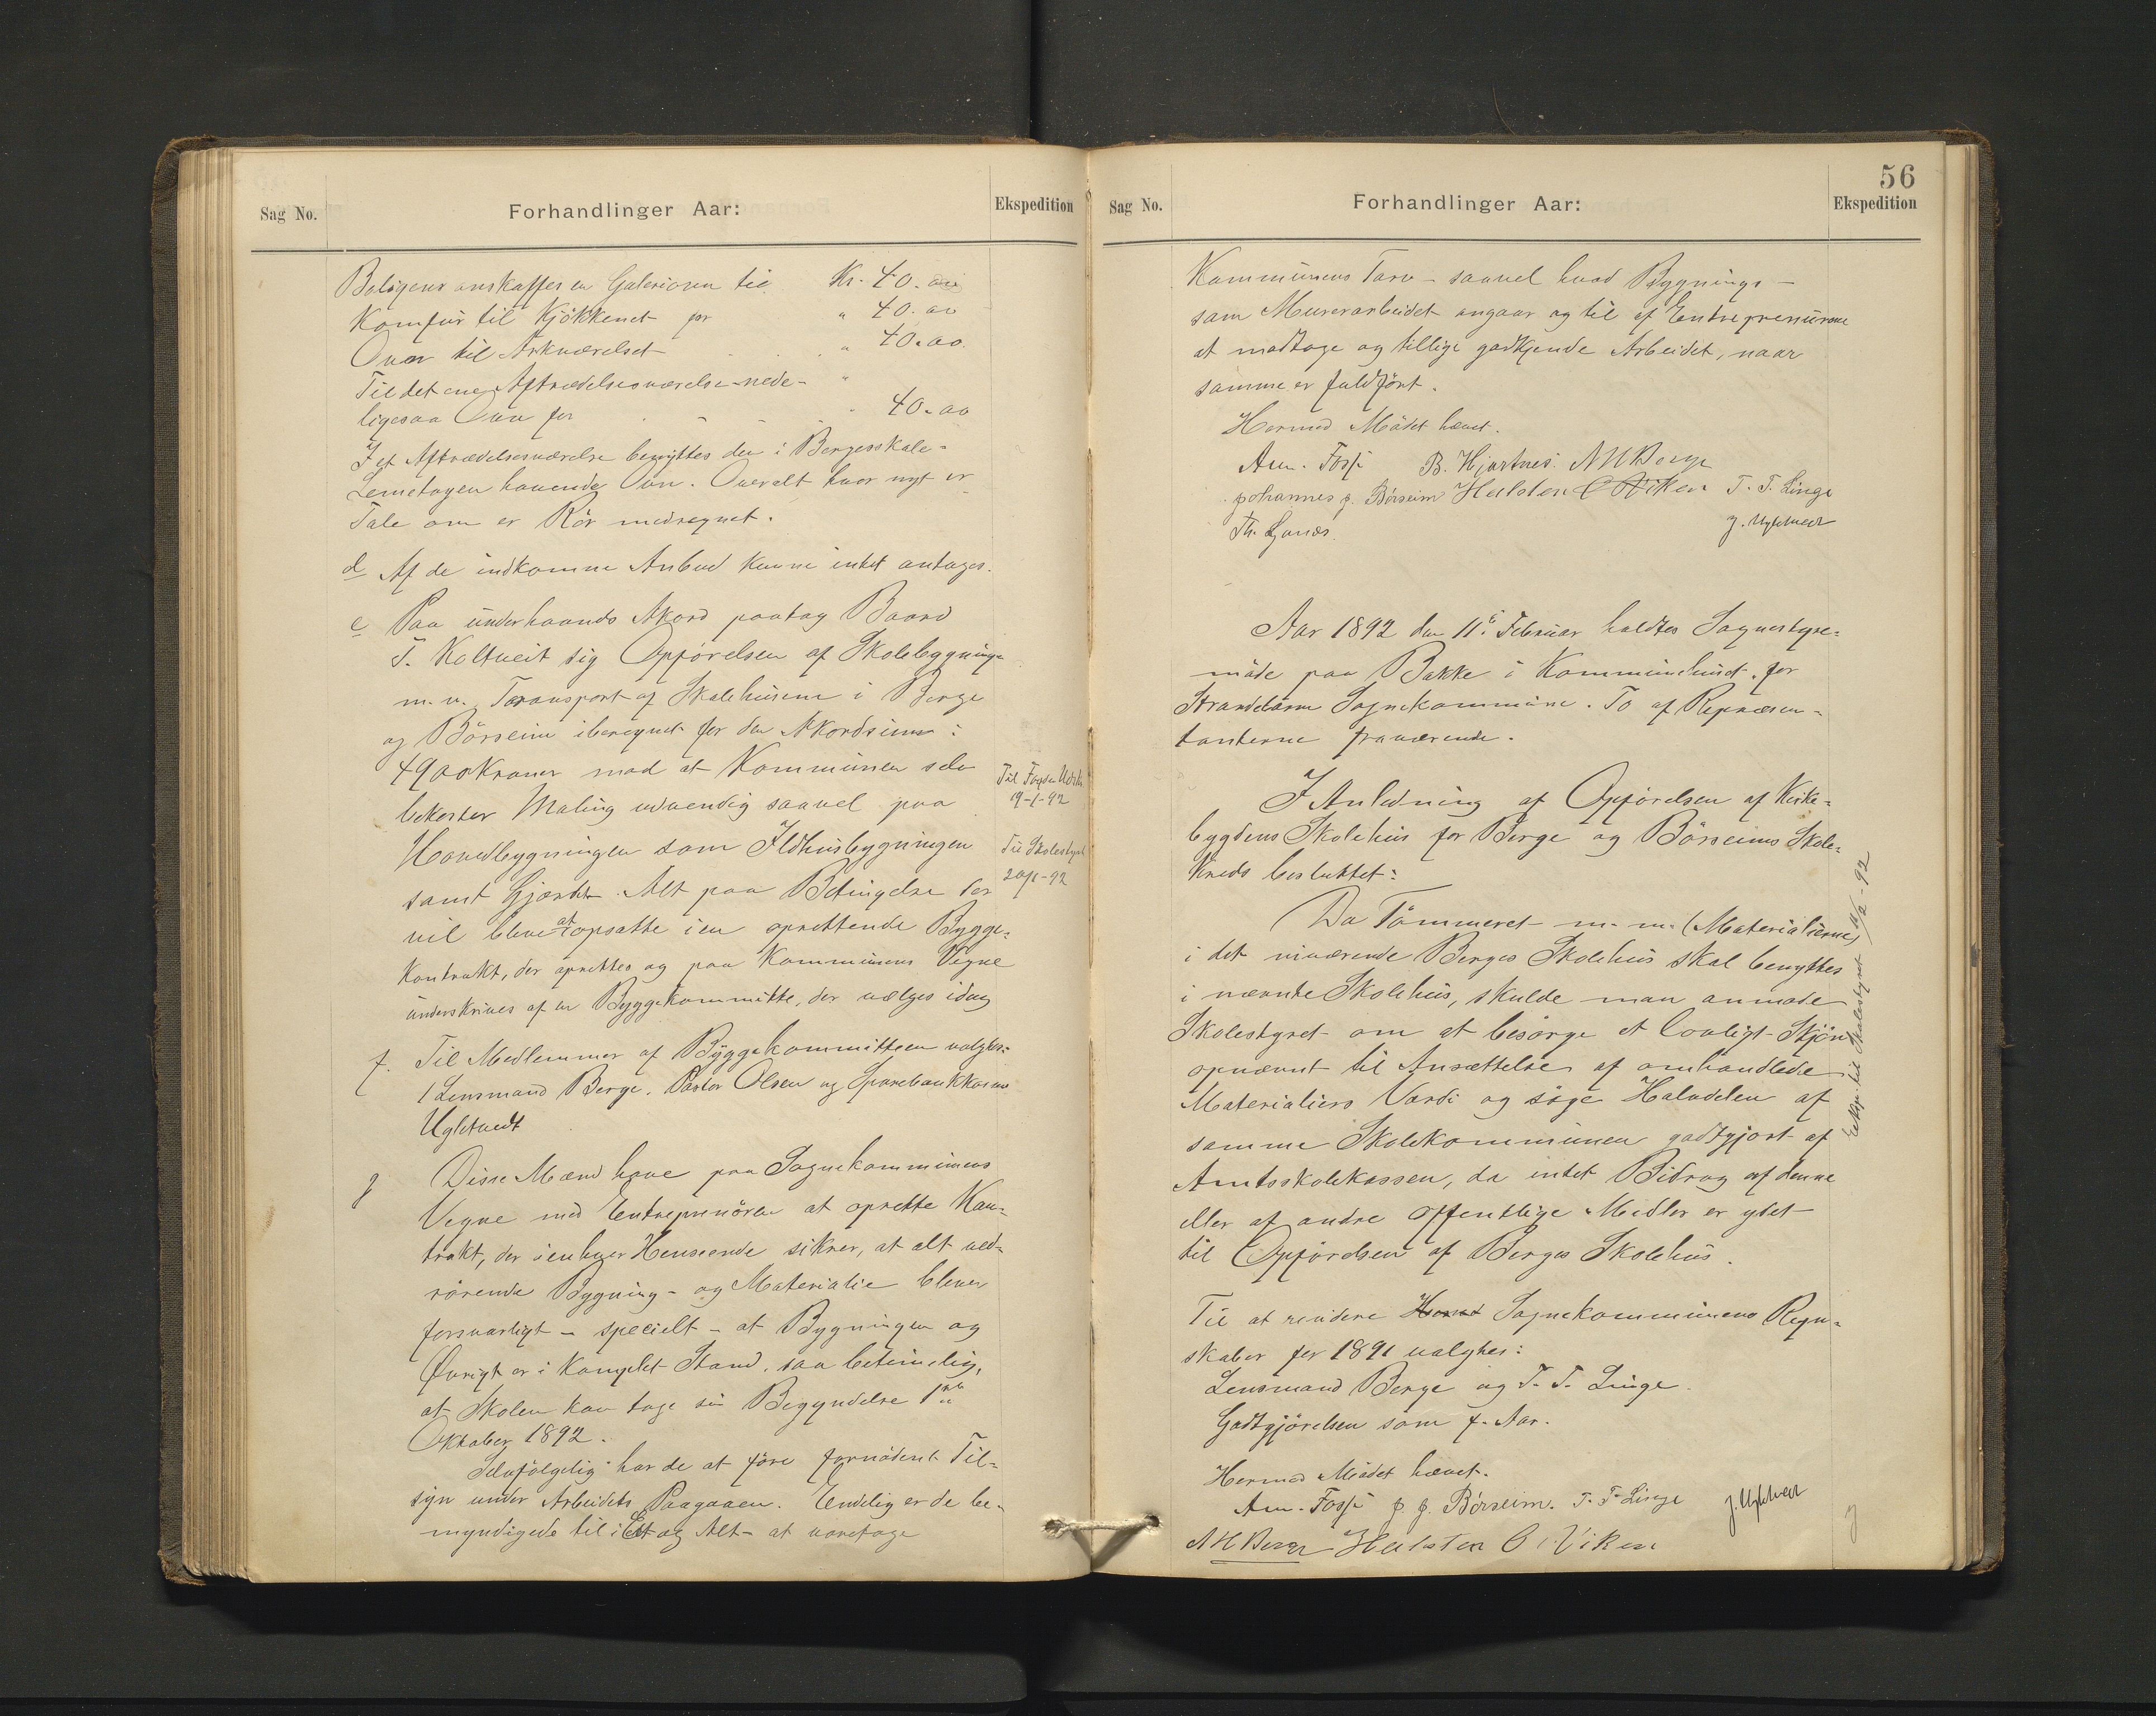 Sag No.
Forhandlinger Aar:
Ekspedition
Boligens anskaffes en Galeriovn til Kr. 40.00
Komfur til Kjökkenet for " 40.00
Ovn til Arkværelset " 40.00.
Til det ene Aftrædelsesværelse nede - "
ligesaa Ovn for 40.00
I et Aftrædelsesværelse benyttes den i Bergesskole-
Lemetagen havende Ovn. Overalt hvor nyt er
Tale om er Rör medregnet.
d Af de indkomne Anbud kunne intet antages.
e Paa underhaands Akord paatog Baard
T. Koltveit sig Opförelsen af Skolebygninge
m.v. Transport af Skolehusene i Berge
og Börseim iberegnet for den Akordsum:
4900 Kroner mod at Kommunen selv
bekoster Maling udvendig saavel paa
Hovedbygningen som Ildhusbygningen
samt Gjærde. Alt paa Betingelse der
vil blive at opsatte i en oprettende Bygge-
Kontrakt, der oprettes og paa Kommunens Vegne
underskrives af en Byggekommitte, der vælges idag
Til Fogden
19-1-92
Til Skolestyret
20/1-92
f. Til Medlemmer af Byggekommitteen valgtes:
Lensmand Berge. Pastor Olsen og Sparebankkasse
Ugletvedt
g Disse Mænd have paa Sognekommunens
Vegne med Entreprenören at oprette Kon-
trakt, der i enhver Henseende sikrer, at alt ved-
rörende Bygning- og Materialie bliver
forsvarligt - specielt - at Bygningen og
Övrigt er i Komplet Stand, saa betimelig,
at Skolen kan tage sin Begyndelse 1ste
Oktober 1892.
Selvfölgelig har de at före fornödent Til-
syn under Arbeidets Paagaaen. Endelig er de be-
myndigede til i Et og Alt - at varetage
56
Sag No.
Forhandlinger Aar:
Ekspedition
Kommunens Tarv - saavel hvad Bygnings-
som Murerarbeidet angaar og til af Entreprenurene
at modtage og tillige godkjende Arbeidet, naar
samme er fuldfört.
Hermed Mödet hævet.
Am. Fosse B. Hjartnes. AHBerge
Johannes J. Börseim Halsten O Viken T. T. Linge
Th. Lyanes. J. Ugletvedt
Aar 1892 den 11te Februar holdtes Sognestyre-
möde paa Bakke i Kommunehuset for
Strandebarm Sognekommune. To af Repræsen-
tanterne fraværende.
I Anledning af Opförelsen af Kirke-
bygdens Skolehus for Berge og Börseims Skole-
kreds besluttet:
Da Tömmeret m.m. (Materialierne)
i det nuværende Berges Skolehus skal benyttes
i nævnte Skolehus, skulde man anmode
Skolestyret om at besörge et lovligt Skjön
opnævnt til Ansættelse af omhandlede
Materialiers Værdi og söge Halvdelen af
samme Skolekommunen godtgjort af
Amtsskolekassen, da intet Bidrag af denne
eller af andre offentlige Midler er ydet
til Opförelsen af Berges Skolehus.
Eksp. til Skolestyret /2-92
Til at revidere Sognekommunens Regn-
skaber for 1891 valgtes:
Lensmand Berge og T. T. Linge.
Godtgjörelsen som f. Aar.
Hermed Mödet hævet.
Am. Fosse J. J. Börseim. T. T. Linge J. Ugletvedt
AHBerge Halsten O Viken